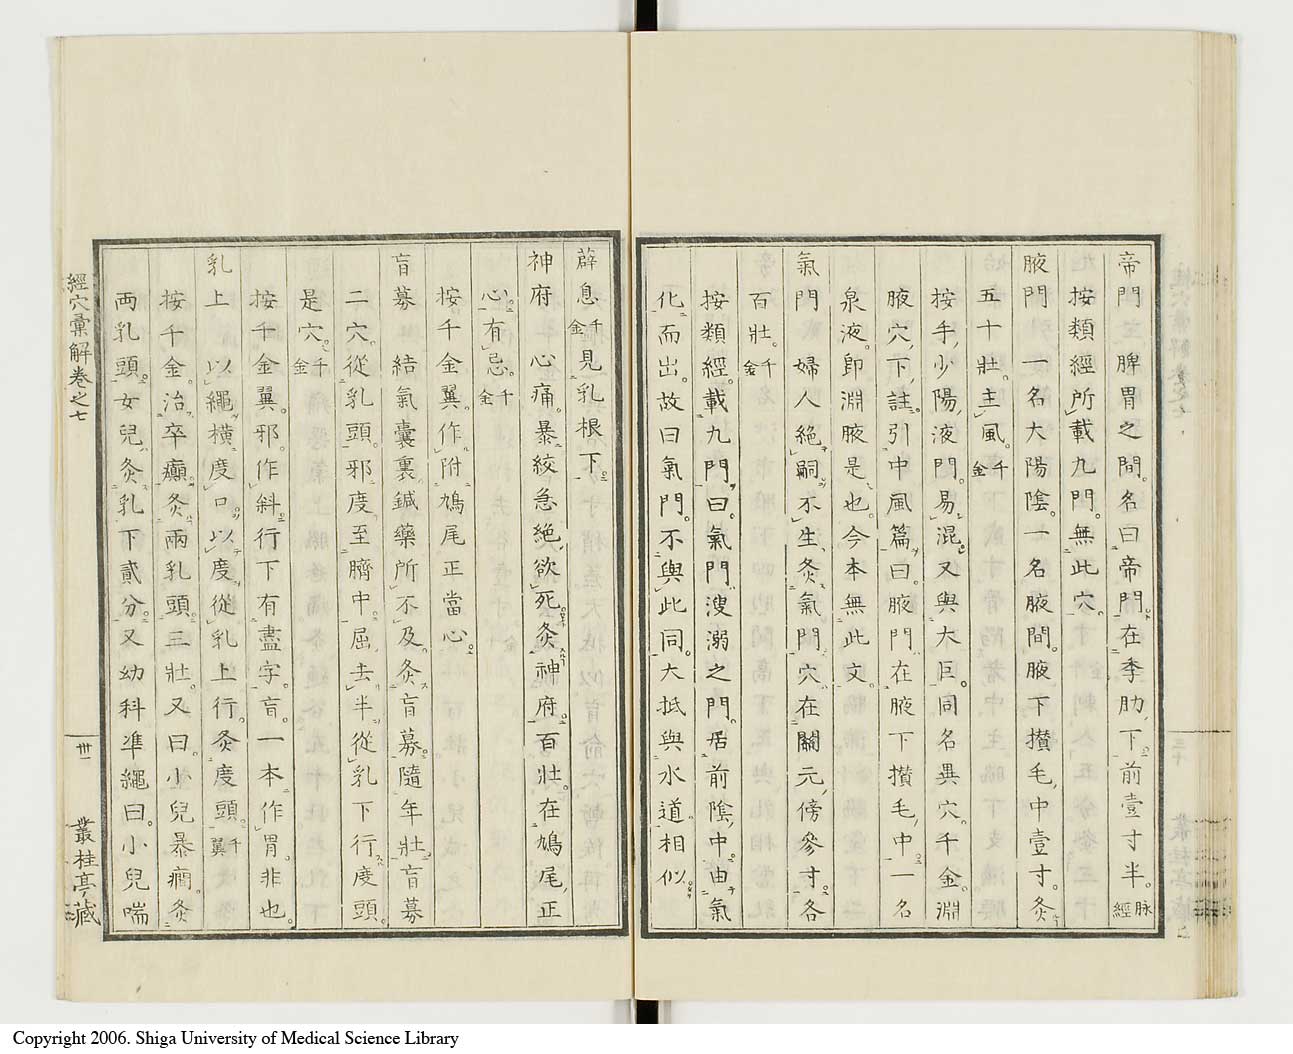 帝門　脾胃之間。名曰帝門。在季肋下前壹寸半。脉經
按類經所載九門。無此穴。
腋門　一名大陽陰。一名腋間。腋下攅毛中壹寸。灸
五十壯。主風。千金
按手少陽液門。易混。又與大巨。同名異穴。千金淵
腋穴下註。引中風篇曰。腋門在腋下攅毛中。一名
泉液。卽淵腋是也。今本無此文。
氣門　婦人絶嗣不生。灸氣門。穴在關元傍參寸。各
百壯。千金
按類經。載九門曰。氣門溲溺之門。居前陰中。由氣
化而出。故曰氣門。不與此同。大抵與水道相似。
薜息千金見乳根下。
神府　心痛。暴絞急絶。欲死。灸神府。百壯。在鳩尾正
心。有忌。千金
按千金翼。作附鳩尾正當心。
肓募　結氣囊裏。鍼藥所不及。灸肓募。隨年壯。肓募
二穴。從乳頭邪度至臍中。屈去半。從乳下行。度頭。
是穴。千金
按千金翼。邪。作斜。行下有盡字。肓。一本作胃。非也。
乳上　以繩横度口。以度從乳上行。灸度頭。千翼
按千金。治卒癲。灸兩乳頭。三壯。又曰。少兒暴癎。灸
兩乳頭。女兒。灸乳下貳分。又幼科準繩曰。小兒喘
經穴彙解卷之七
卅一
叢桂亭藏
Copyright 2006. Shiga University of Medical Science Library